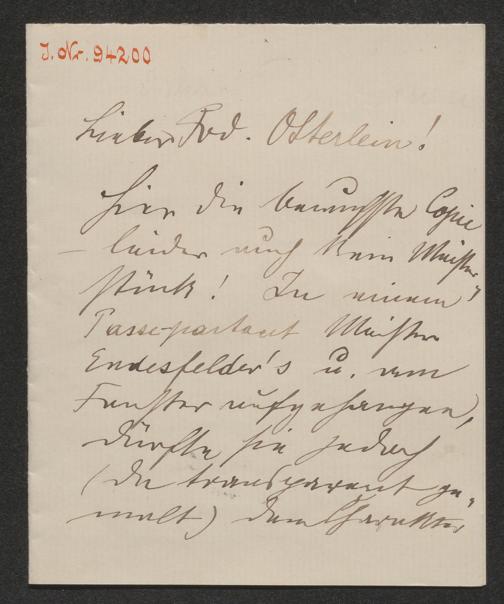 J. Nr. 94200
Lieber Frd. Otterlein!
Hier die bewusste Copie
– leider auch kein Meister-
stück! In einem
Passe-partout Meister
Endesfelder's u. am
Fenster aufgehangen,
dürfte sie jedoch
(da transparent ge-
malt) dem Charakter